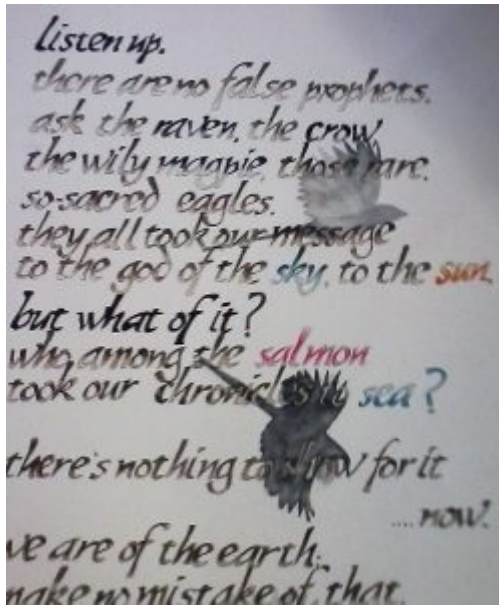 listen up.
there are no false prophets.
ask the raven, the crow,
the wily magpie, those rare,
so-sacred eagles.
they all took our message
to the god of the sky, to the sun.
but what of it?
who among the salmon
took our chronicles to sea?
there's nothing to show for it
.... now.
we are of the earth.
make no mistake of that.